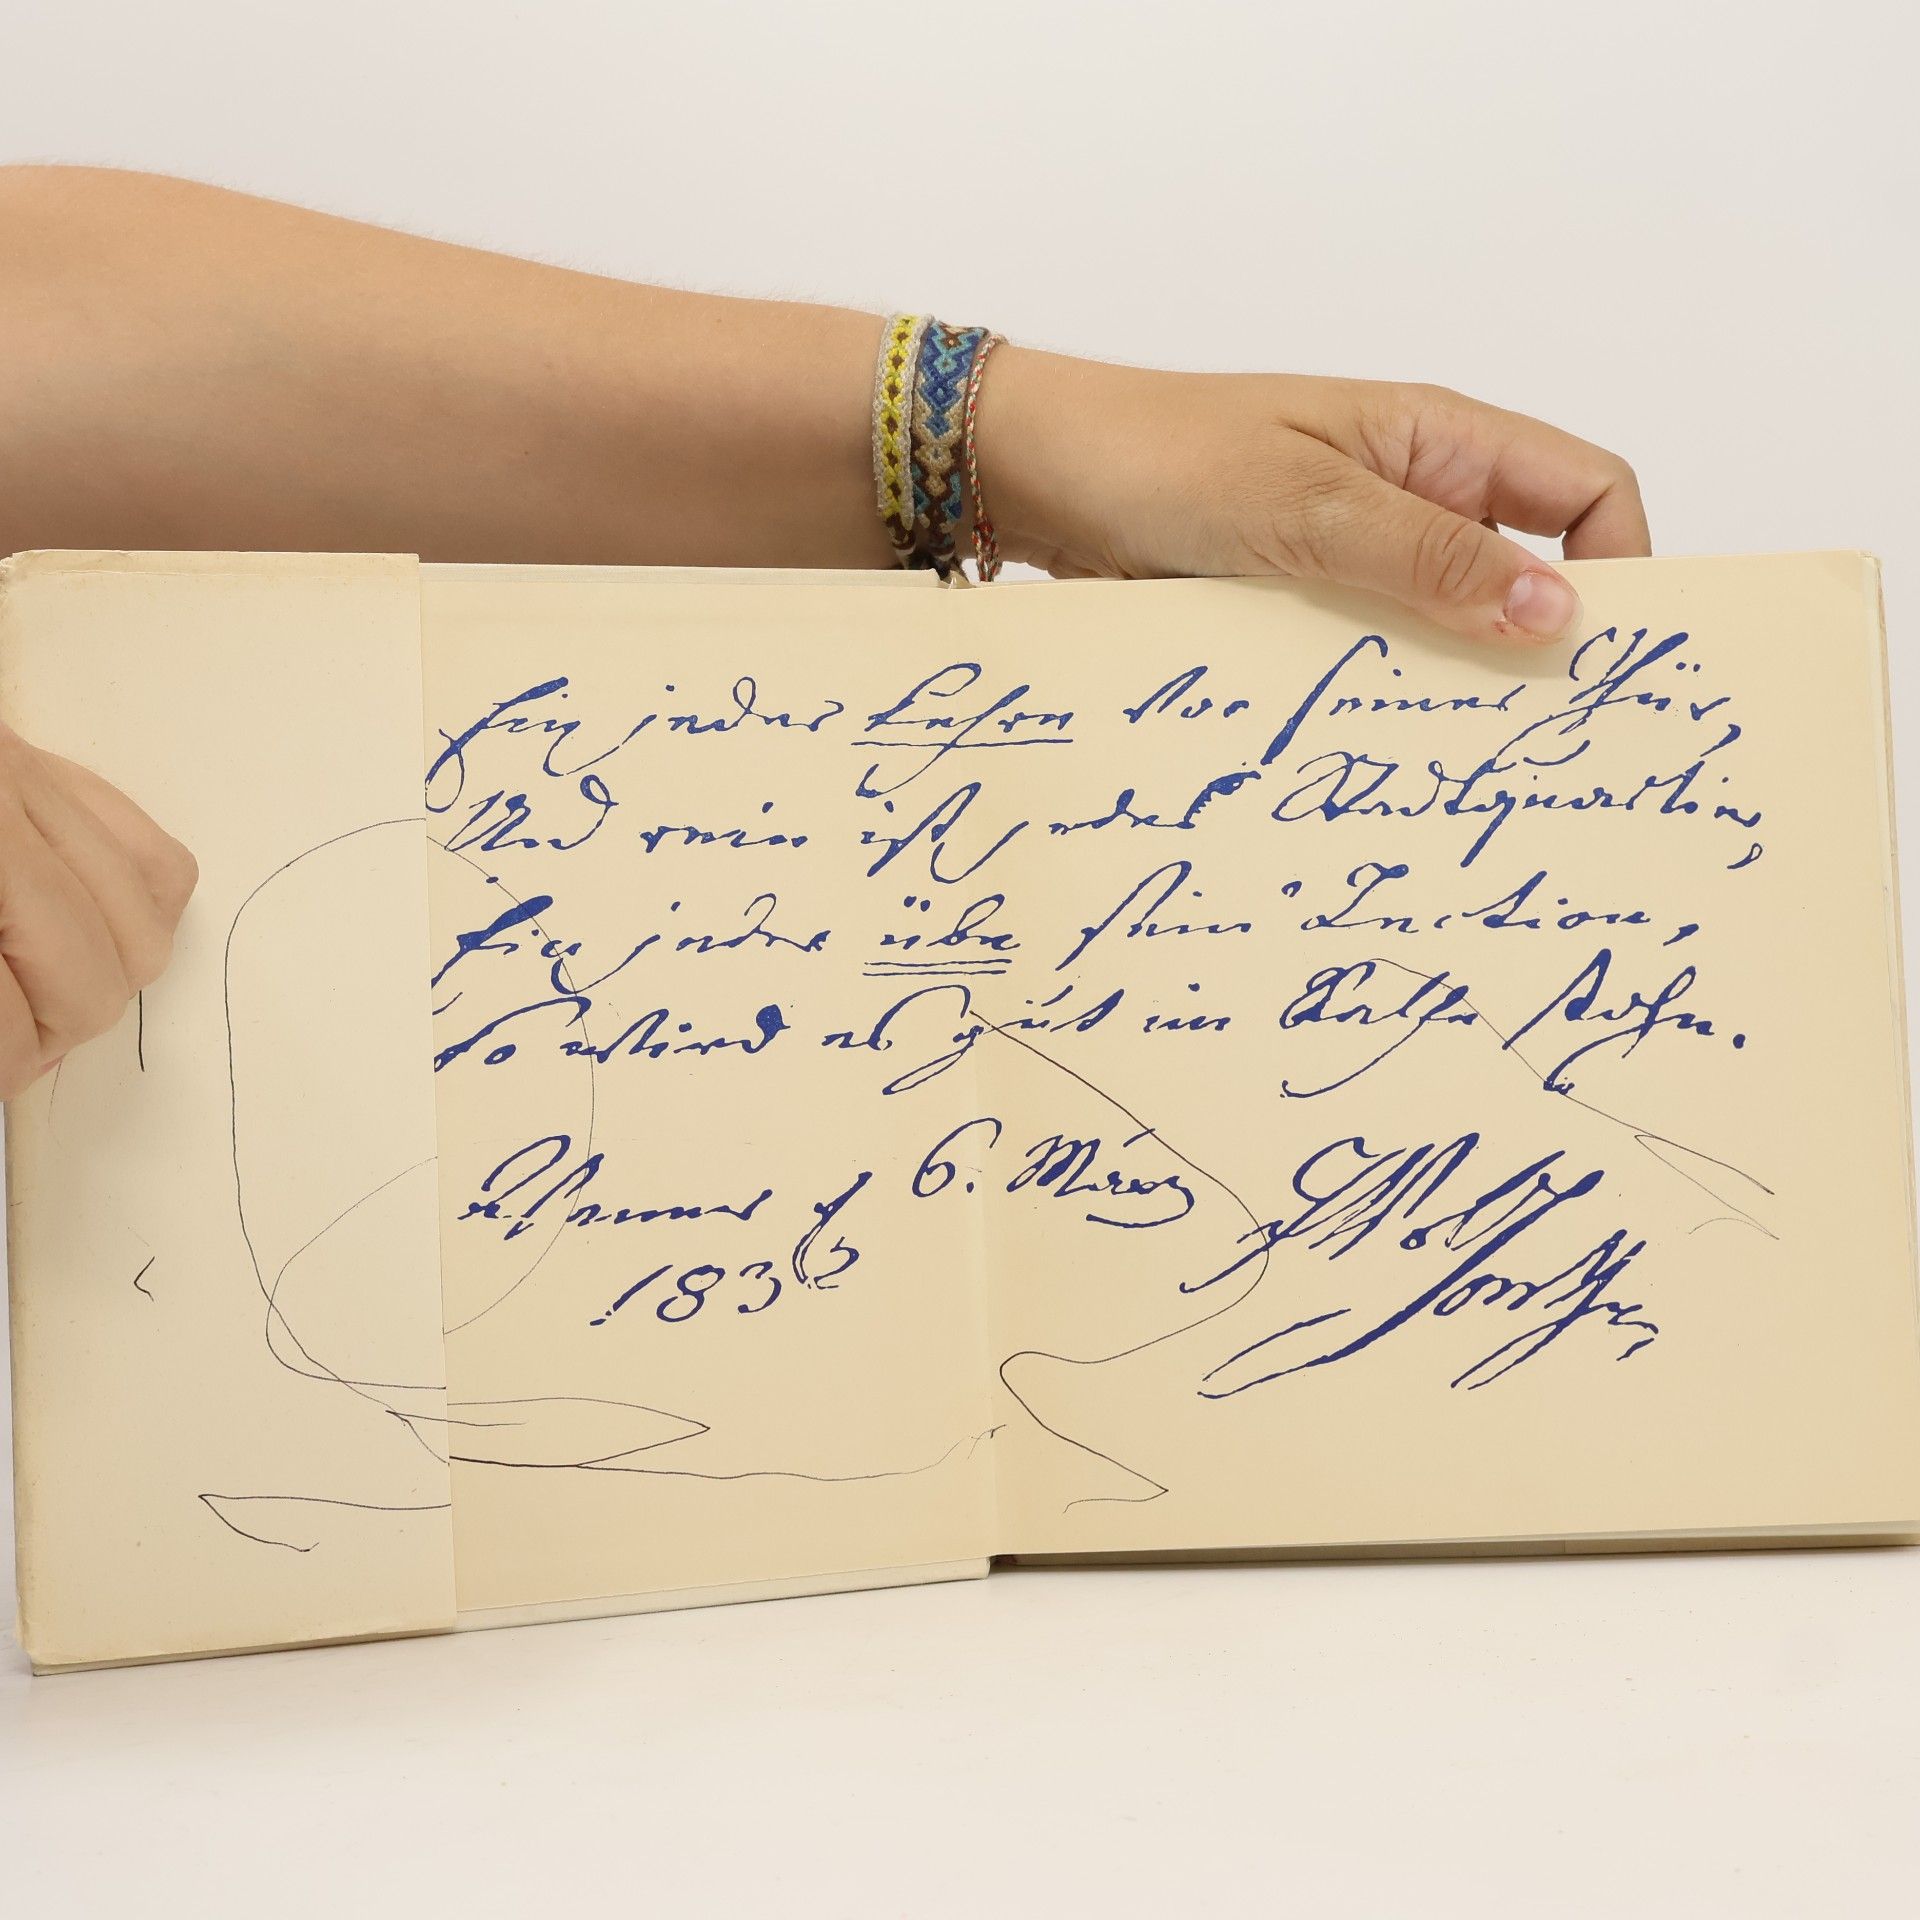 Ein jeder kehre vor seiner Thür,
Und rein ist jedes Stadtquartier,
Ein jeder übe sein' Lection,
So wird es gut im Rathe stehn.
Weimar d 6. März
1832
JWvGoethe